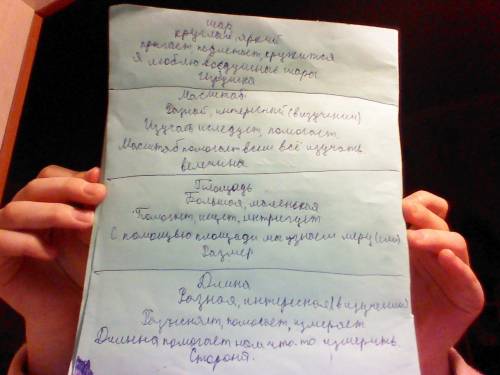 шар
круглый, яркий
прыгает, подлетает, кружится
Я люблю воздушные шары
Игрушка
Масштаб
Разный, интересный (в изучении)
Изучает, иследует, помогает
Масштаб помогает всем всё изучать
величина
Площадь
Большая, маленькая
Помогает, ищет, интригует
С помощью площади мы узнаем меру
Размер
Длина
Разная, интересная (в изучении)
помогает, измеряет
Длинна помогает нам что-то измерить
Сторона.